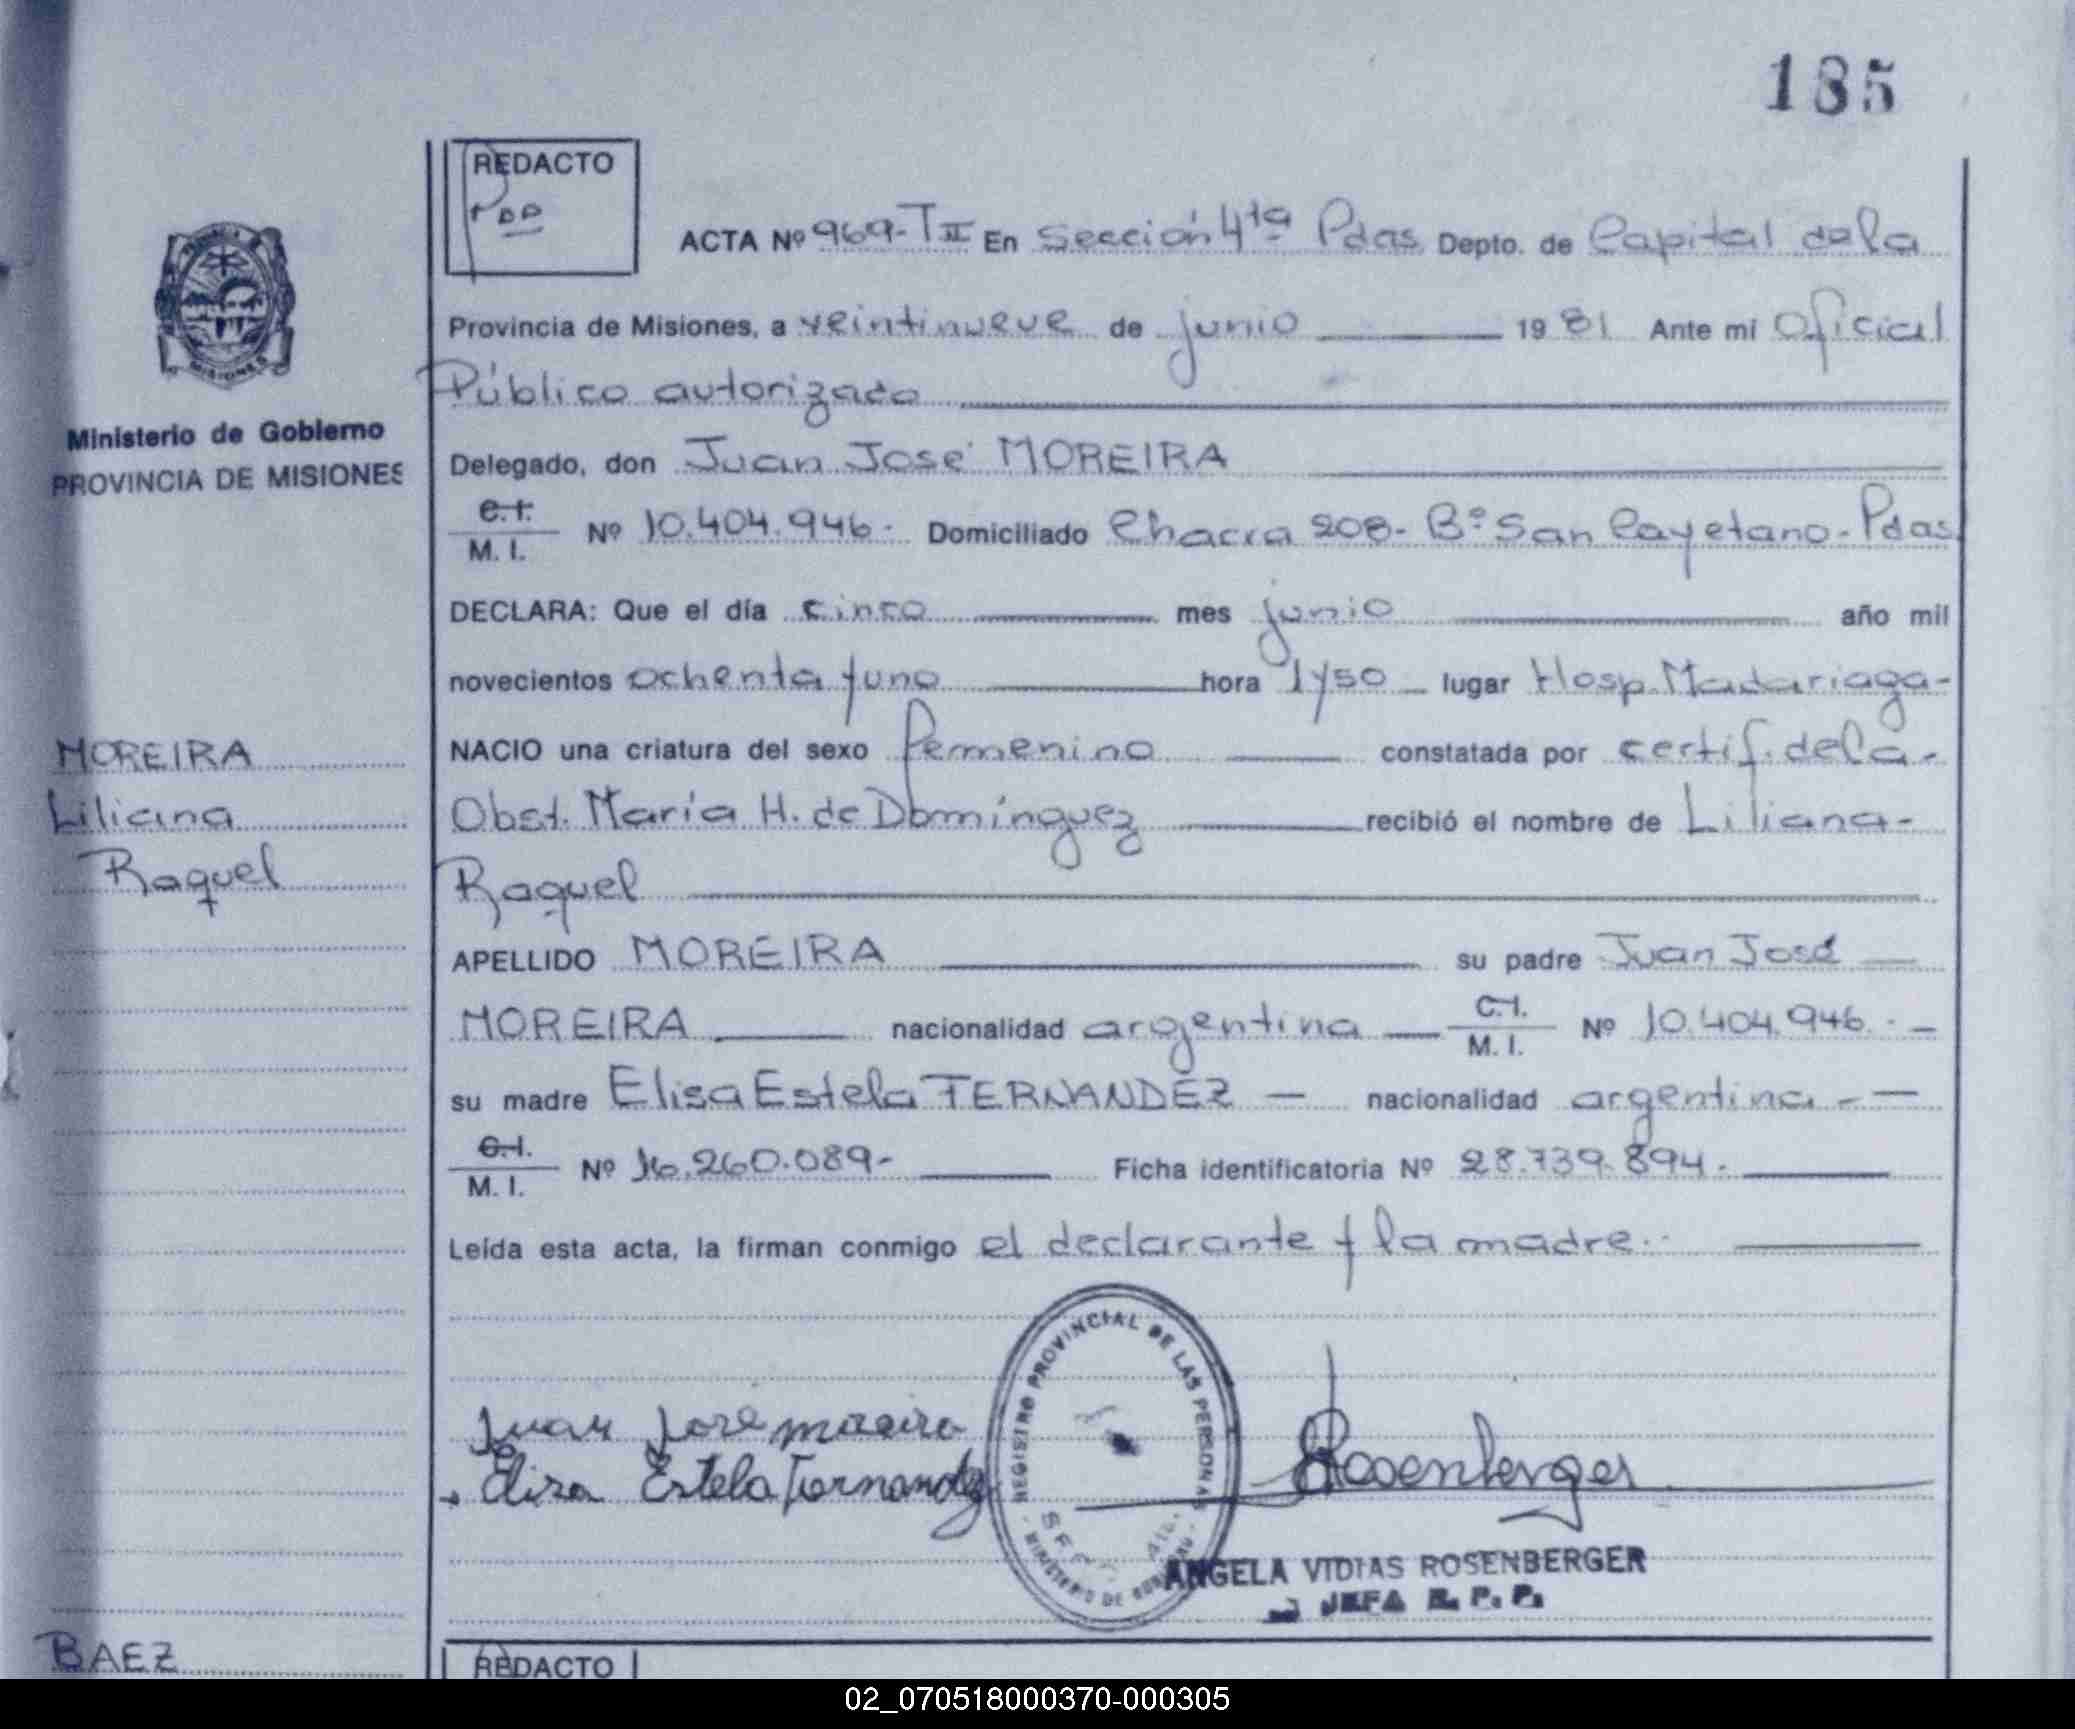 185
REDACTO
ACTA Nº 969-T II En Sección 4ta Pdas Depto. de Capital de la
Provincia de Misiones, a veintinueve de junio 1981 Ante mi Oficial
Público autorizado
Ministerio de Gobierno
PROVINCIA DE MISIONES
Delegado, don Juan José MOREIRA
C.I.
M. I. Nº 10.404.946.- Domiciliado Chacra 208- Bº San Cayetano- Pdas
DECLARA: Que el día cinco mes junio año mil
novecientos ochenta y uno hora 1y50 lugar Hosp. Madariaga-
MOREIRA
Liliana
Raquel
NACIO una criatura del sexo femenino constatada por certif. de la-
Obst. María H. de Domínguez recibió el nombre de Liliana-
Raquel
APELLIDO MOREIRA su padre Juan José
MOREIRA nacionalidad argentina C.I. M. I. Nº 10.404.946.-
su madre Elisa Estela FERNANDEZ - nacionalidad argentina - -
C.I.
M. I. Nº 16.260.089- Ficha identificatoria Nº 28.739.894.
Leída esta acta, la firman conmigo el declarante y la madre.-
REGISTRO PROVINCIAL DE LAS PERSONAS
MINISTERIO DE
Juan Jose moreira
Elisa Estela Fernandez
Rosenberger
ANGELA VIDIAS ROSENBERGER
JEFA R. P. P.
BAEZ
REDACTO
02_070518000370-000305